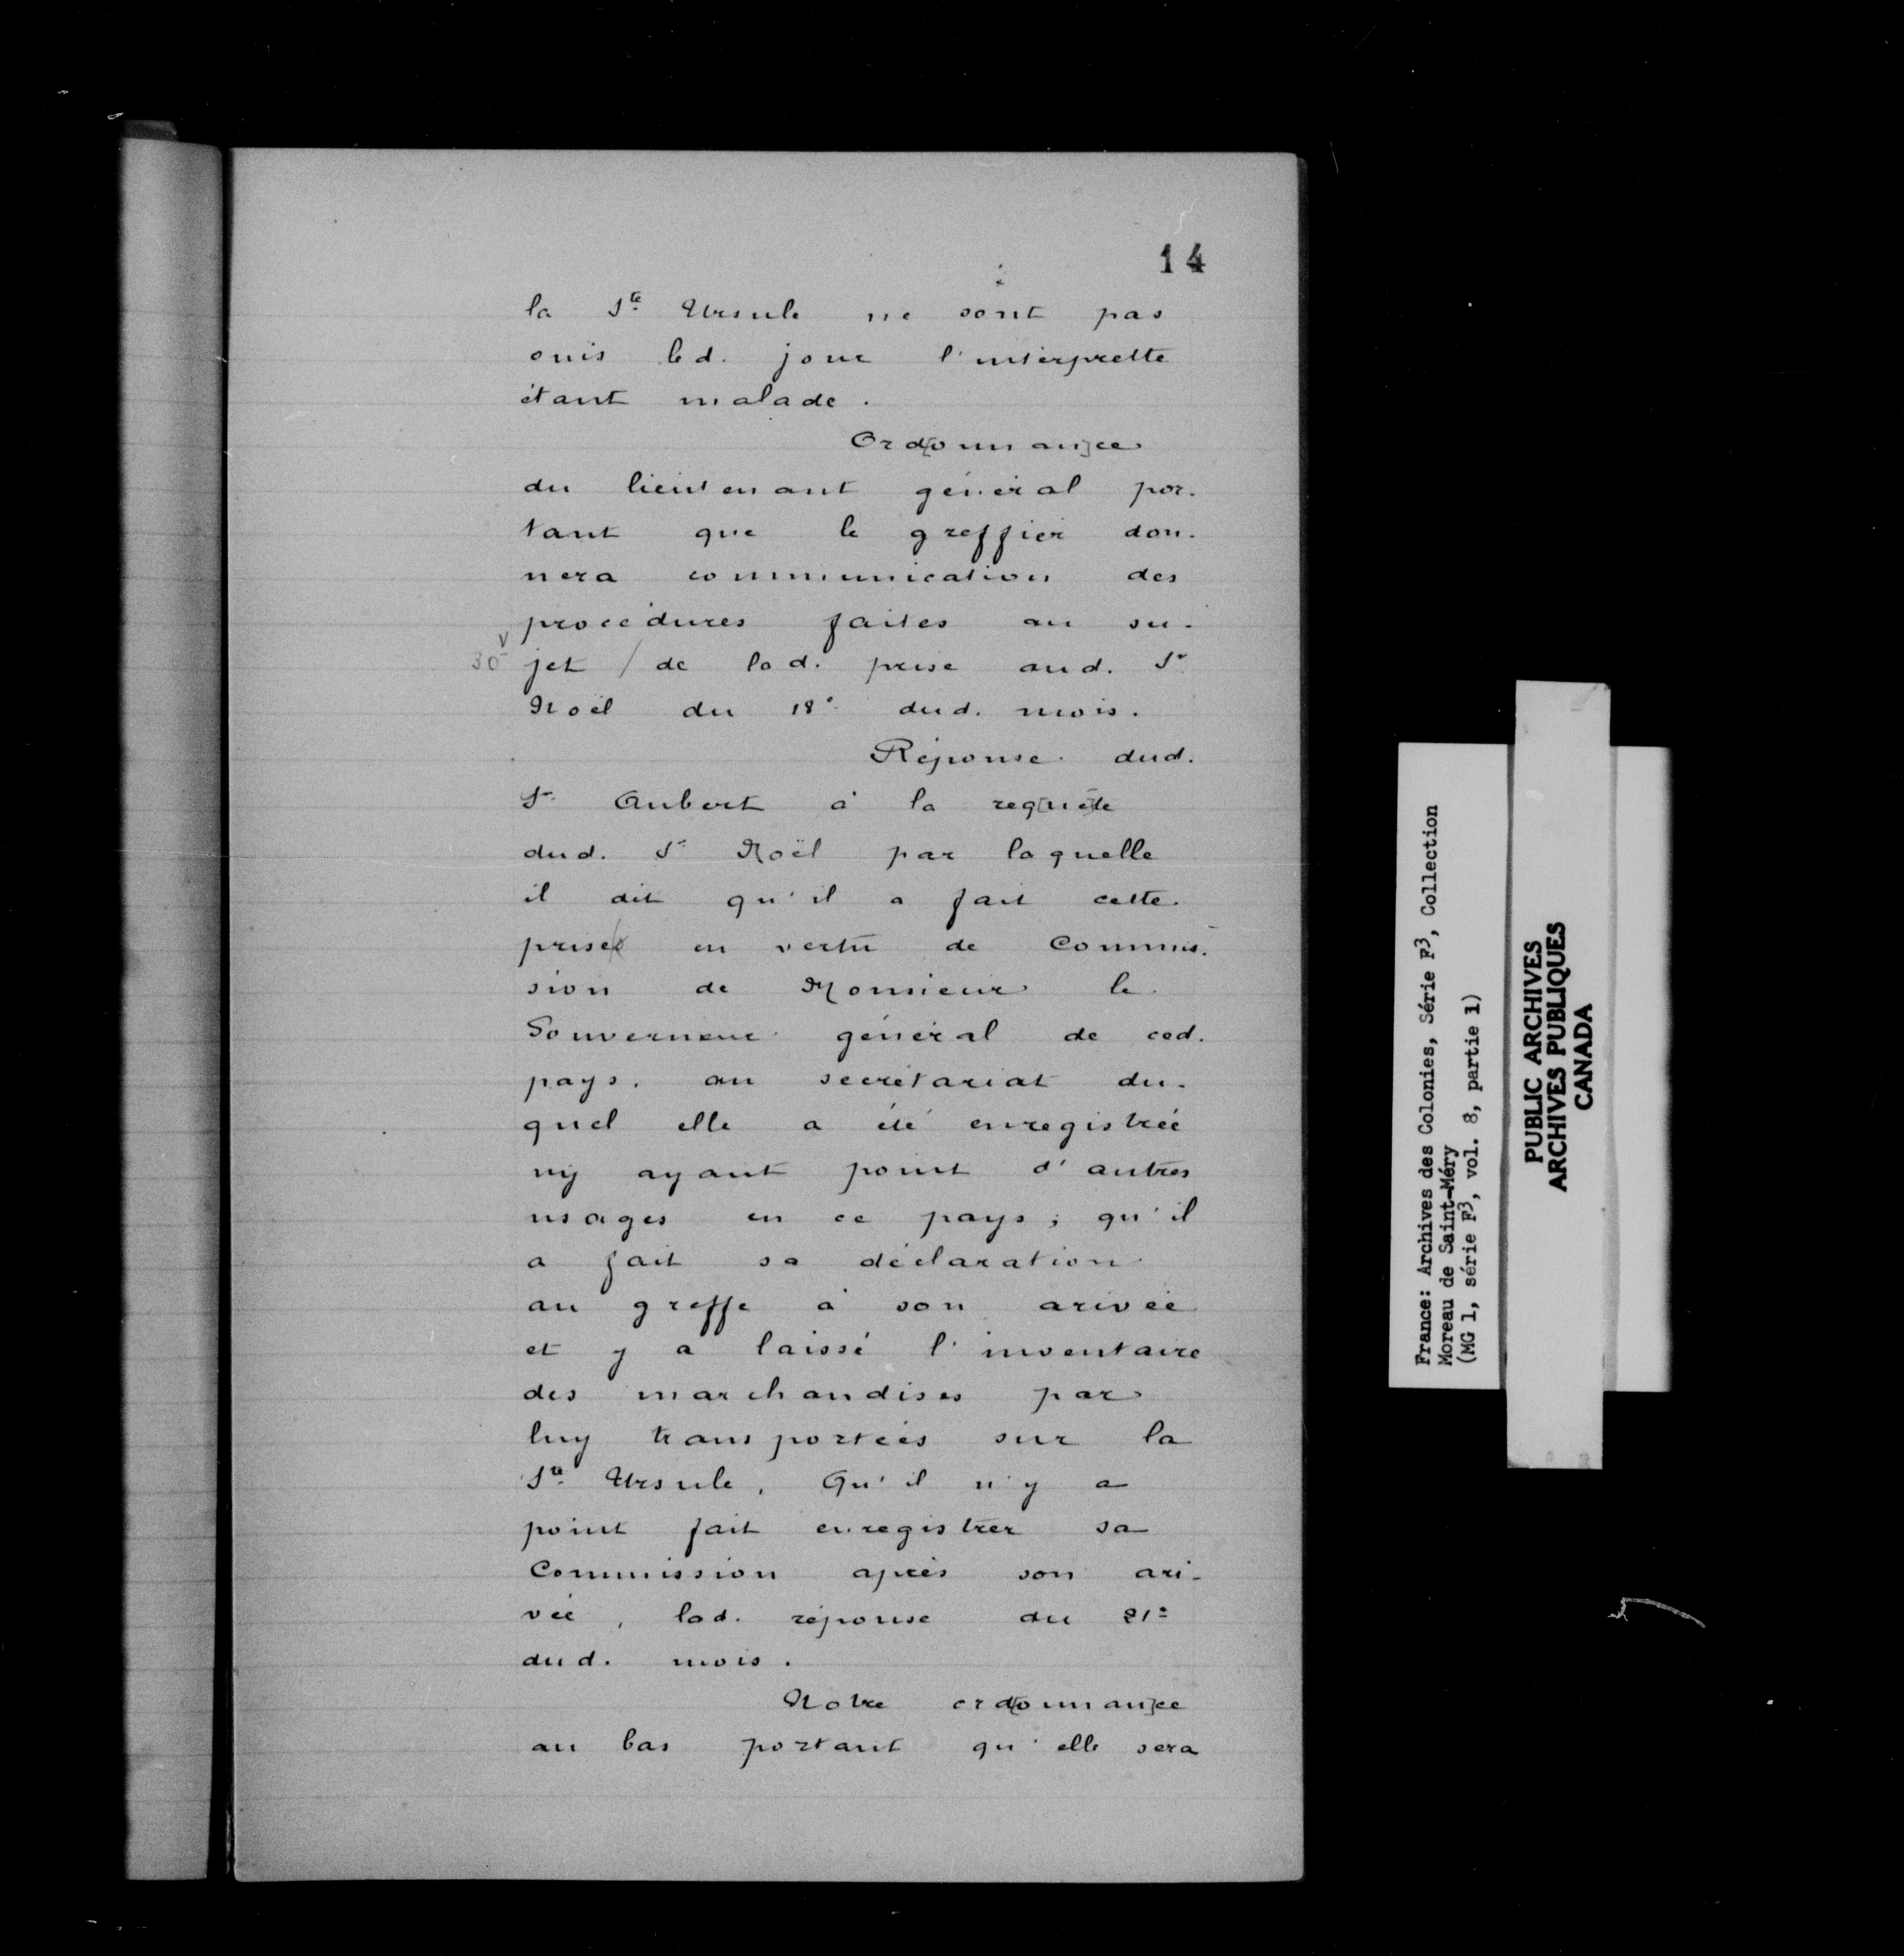 14
la Ste Ursule ne sont pas
ouis led. jour l'interprette
étant malade.
Ord[onnan]ce
du lieutenant général por-
tant que le greffier don-
nera communication des
procédures faites au su-
30 v jet / de lad. prise aud. Sr
Noël du 18e dud. mois.
Réponse dud.
Sr Aubert à la req[uê]te
dud. Sr Noël par laquelle
il dit qu'il a fait cette
prise en vertu de Commis-
sion de Monsieur le
Gouverneur général de ced.
pays. au secrétariat du-
quel elle a été enregistrée
ny ayant point d'autres
usages en ce pays; qu'il
a fait sa déclaration
au greffe à son arivée
et y a laissé l'inventaire
des marchandises par
luy transportées sur la
Ste Ursule, Qu'il n'y a
point fait enregistrer sa
Commission après son ari-
vée, lad. réponse du 21e
dud. mois.
Notre ord[onnan]ce
au bas portant qu'elle sera
France: Archives des Colonies, Série F3, Collection
Moreau de Saint-Méry
(MG 1, série F3, vol. 8, partie 1)
PUBLIC ARCHIVES
ARCHIVES PUBLIQUES
CANADA